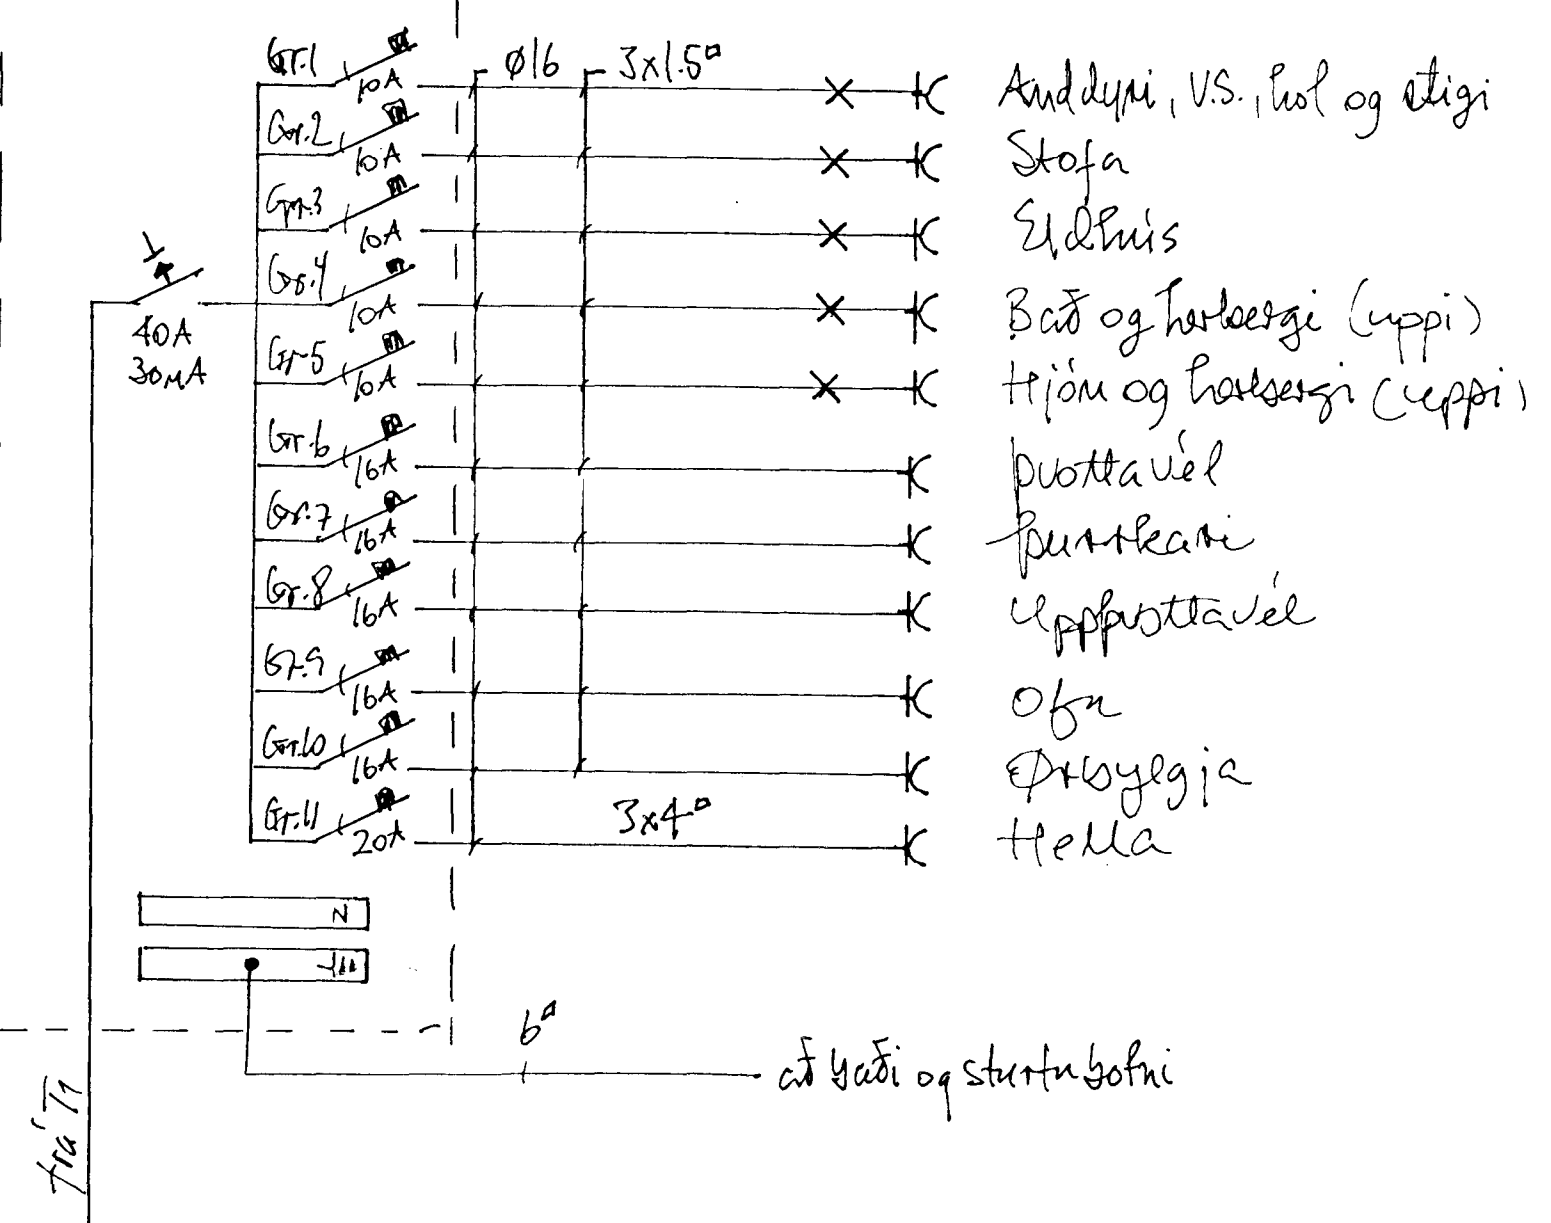 Gr.1 10A ø16 3x1.5▫ Anddyri, V.S., hol og stigi
Gr.2 10A Stofa
Gr.3 10A Eldhús
Gr.4 10A Bað og herbergi (uppi)
Gr.5 10A Hjón og herbergi (uppi)
Gr.6 16A Þvottavél
Gr.7 16A Þurrkari
Gr.8 16A Uppþvottavél
Gr.9 16A Ofn
Gr.10 16A Ørbylgja
Gr.11 20A 3x4▫ Hella
40A
30mA
N
6▫
að baði og sturtubotni
frá T1